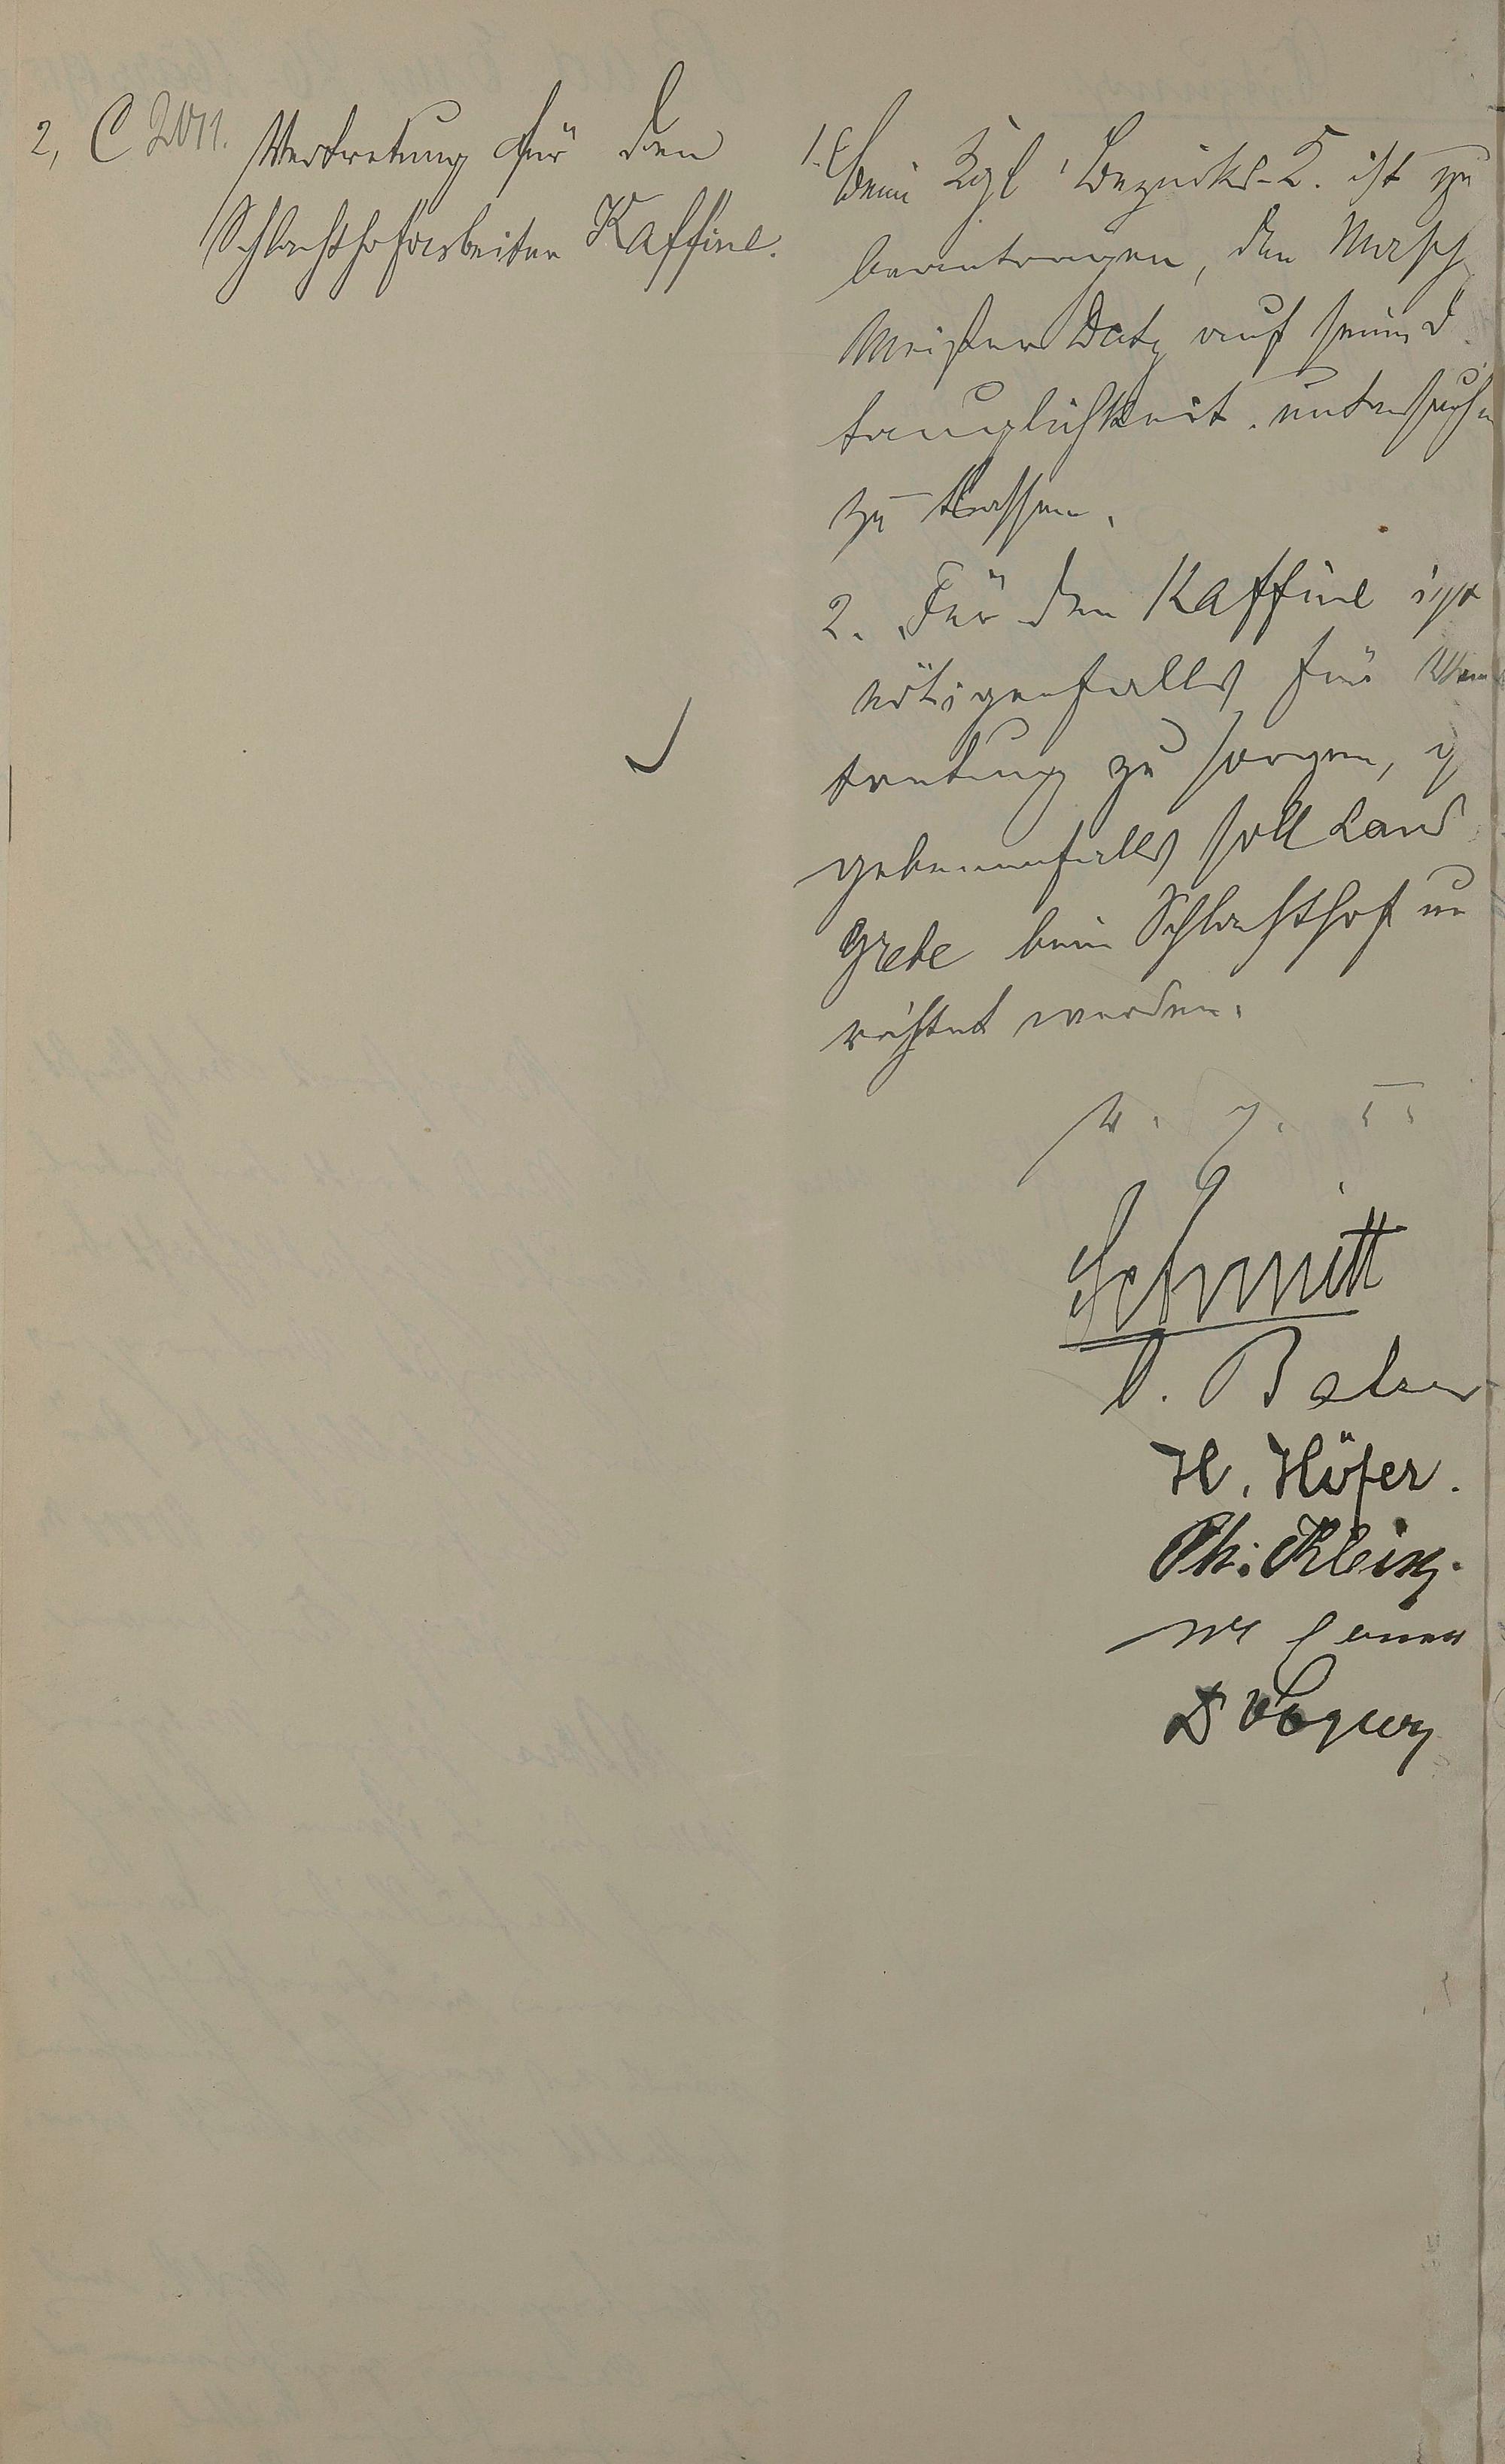 2, C 2011. Vertretung für den
Schlachthofarbeiter Kaffine.
1. Beim Kgl. Bezirks-K. ist zu
beantragen, den Masch
Meister Datz auf seine D
tauglichkeit untersuchen
zu lassen.
2. Für den Kaffine ist
nötigenfalls für Ver
tretung zu sorgen, ge
gebenenfalls soll Land
Grebe beim Schlachthof un
richtet werden.
v. g. u.
Schmitt
Balzer
H. Höfer.
Ph. Klein